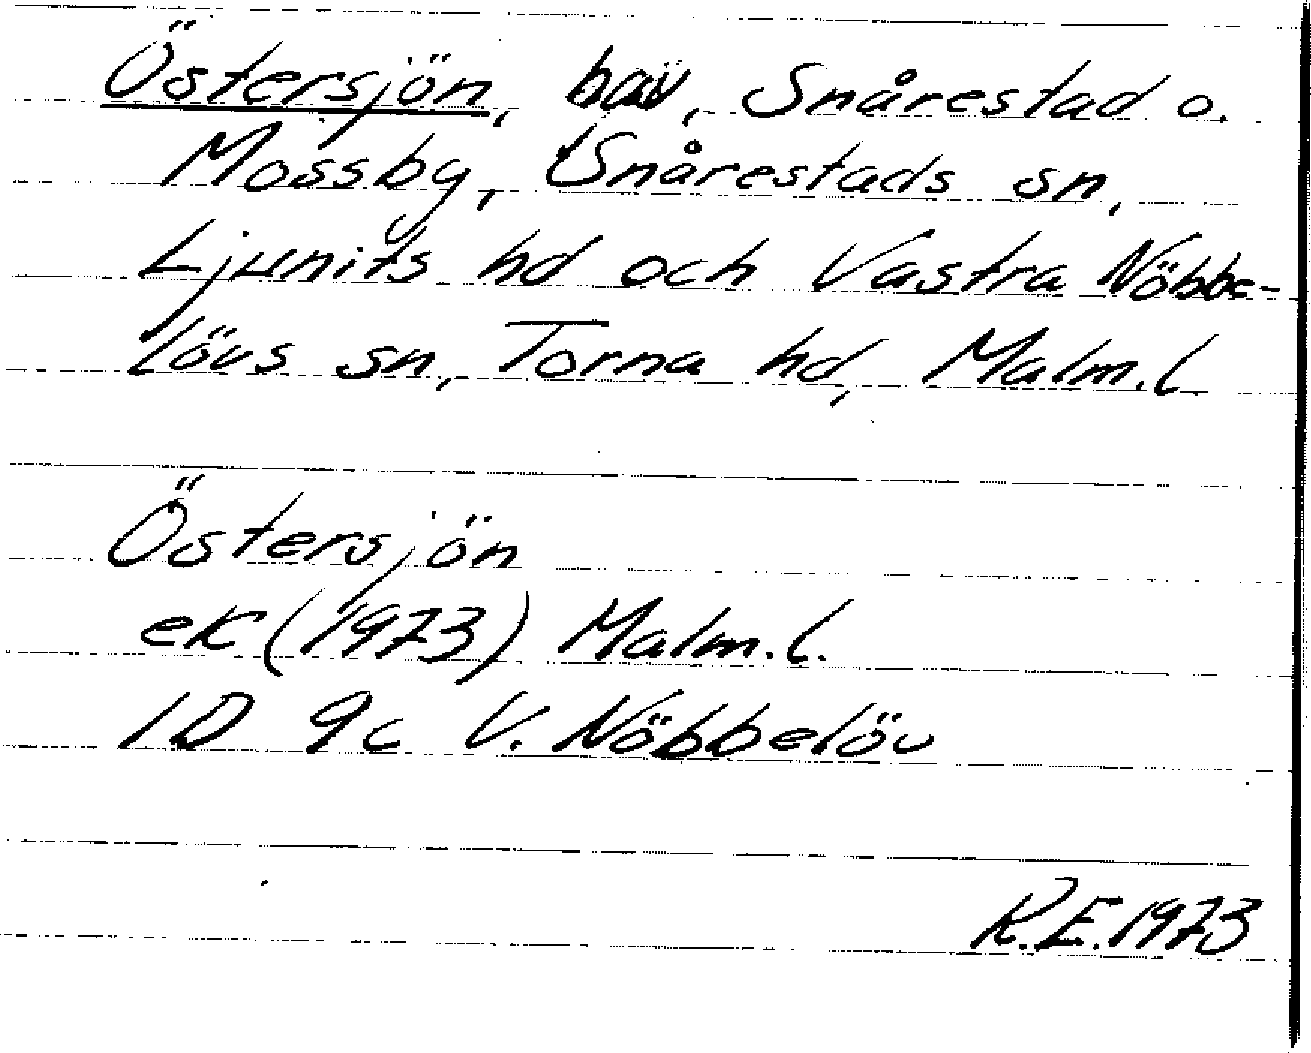 Östersjön, hav, Snårestad o.
Mossby, Snårestads sn,
Ljunits hd och Västra Nöbbe-
lövs sn, Torna hd, Malm.l
Östersjön
ek (1973) Malm.l.
1D 9c V. Nöbbelöv
R.E.1973